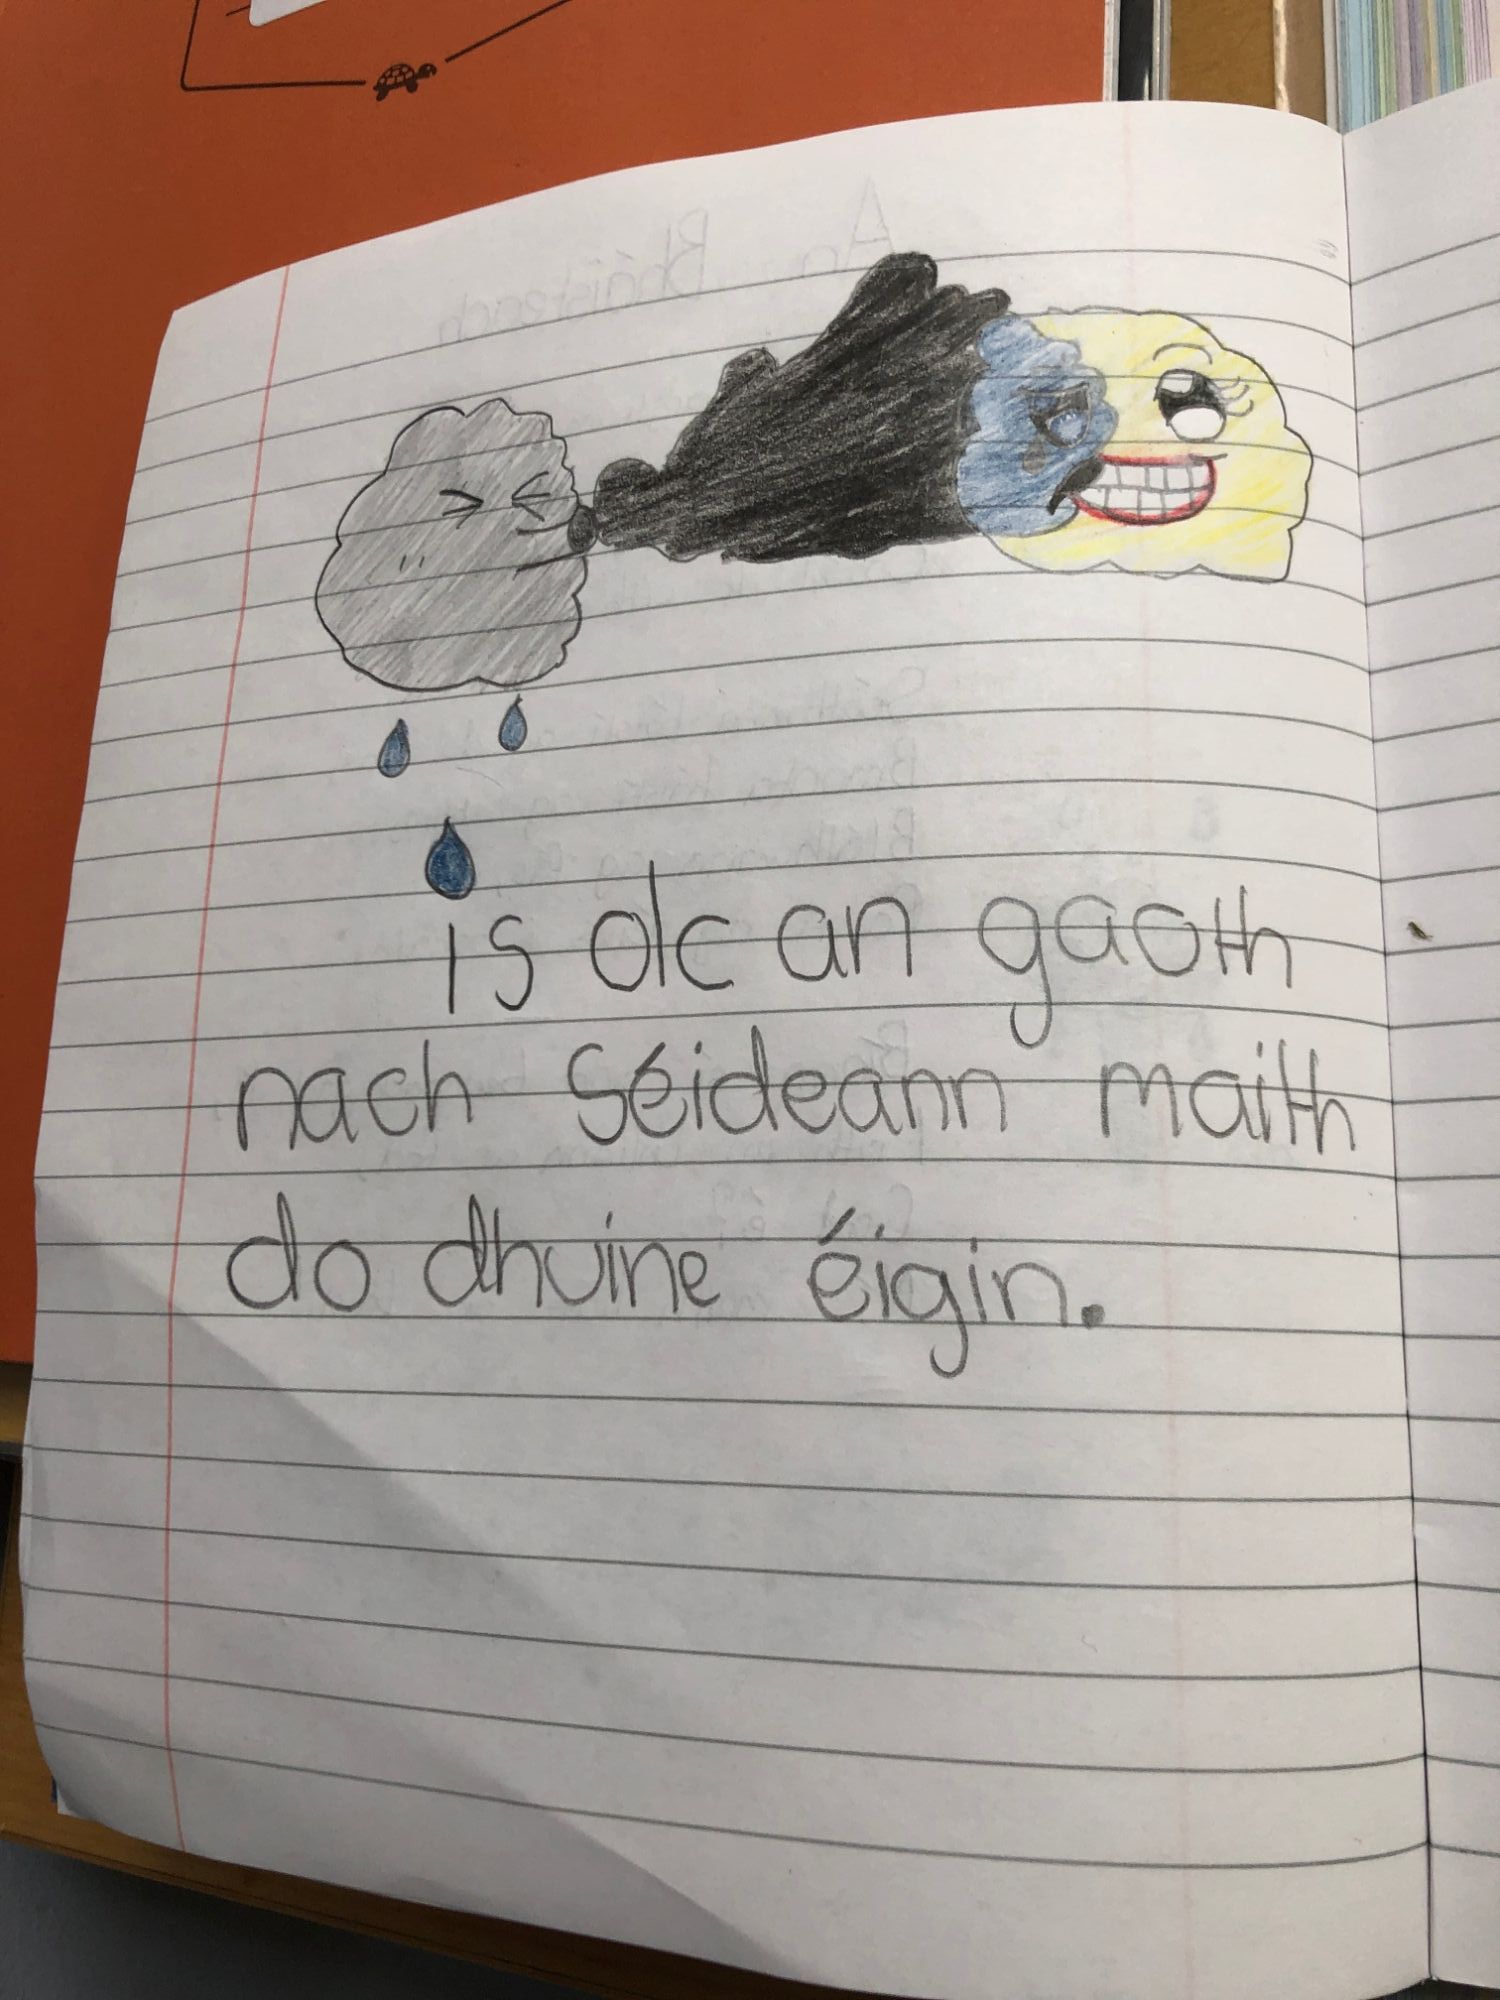 is olc an gaoth
nach séideann maith
do dhuine éigin.